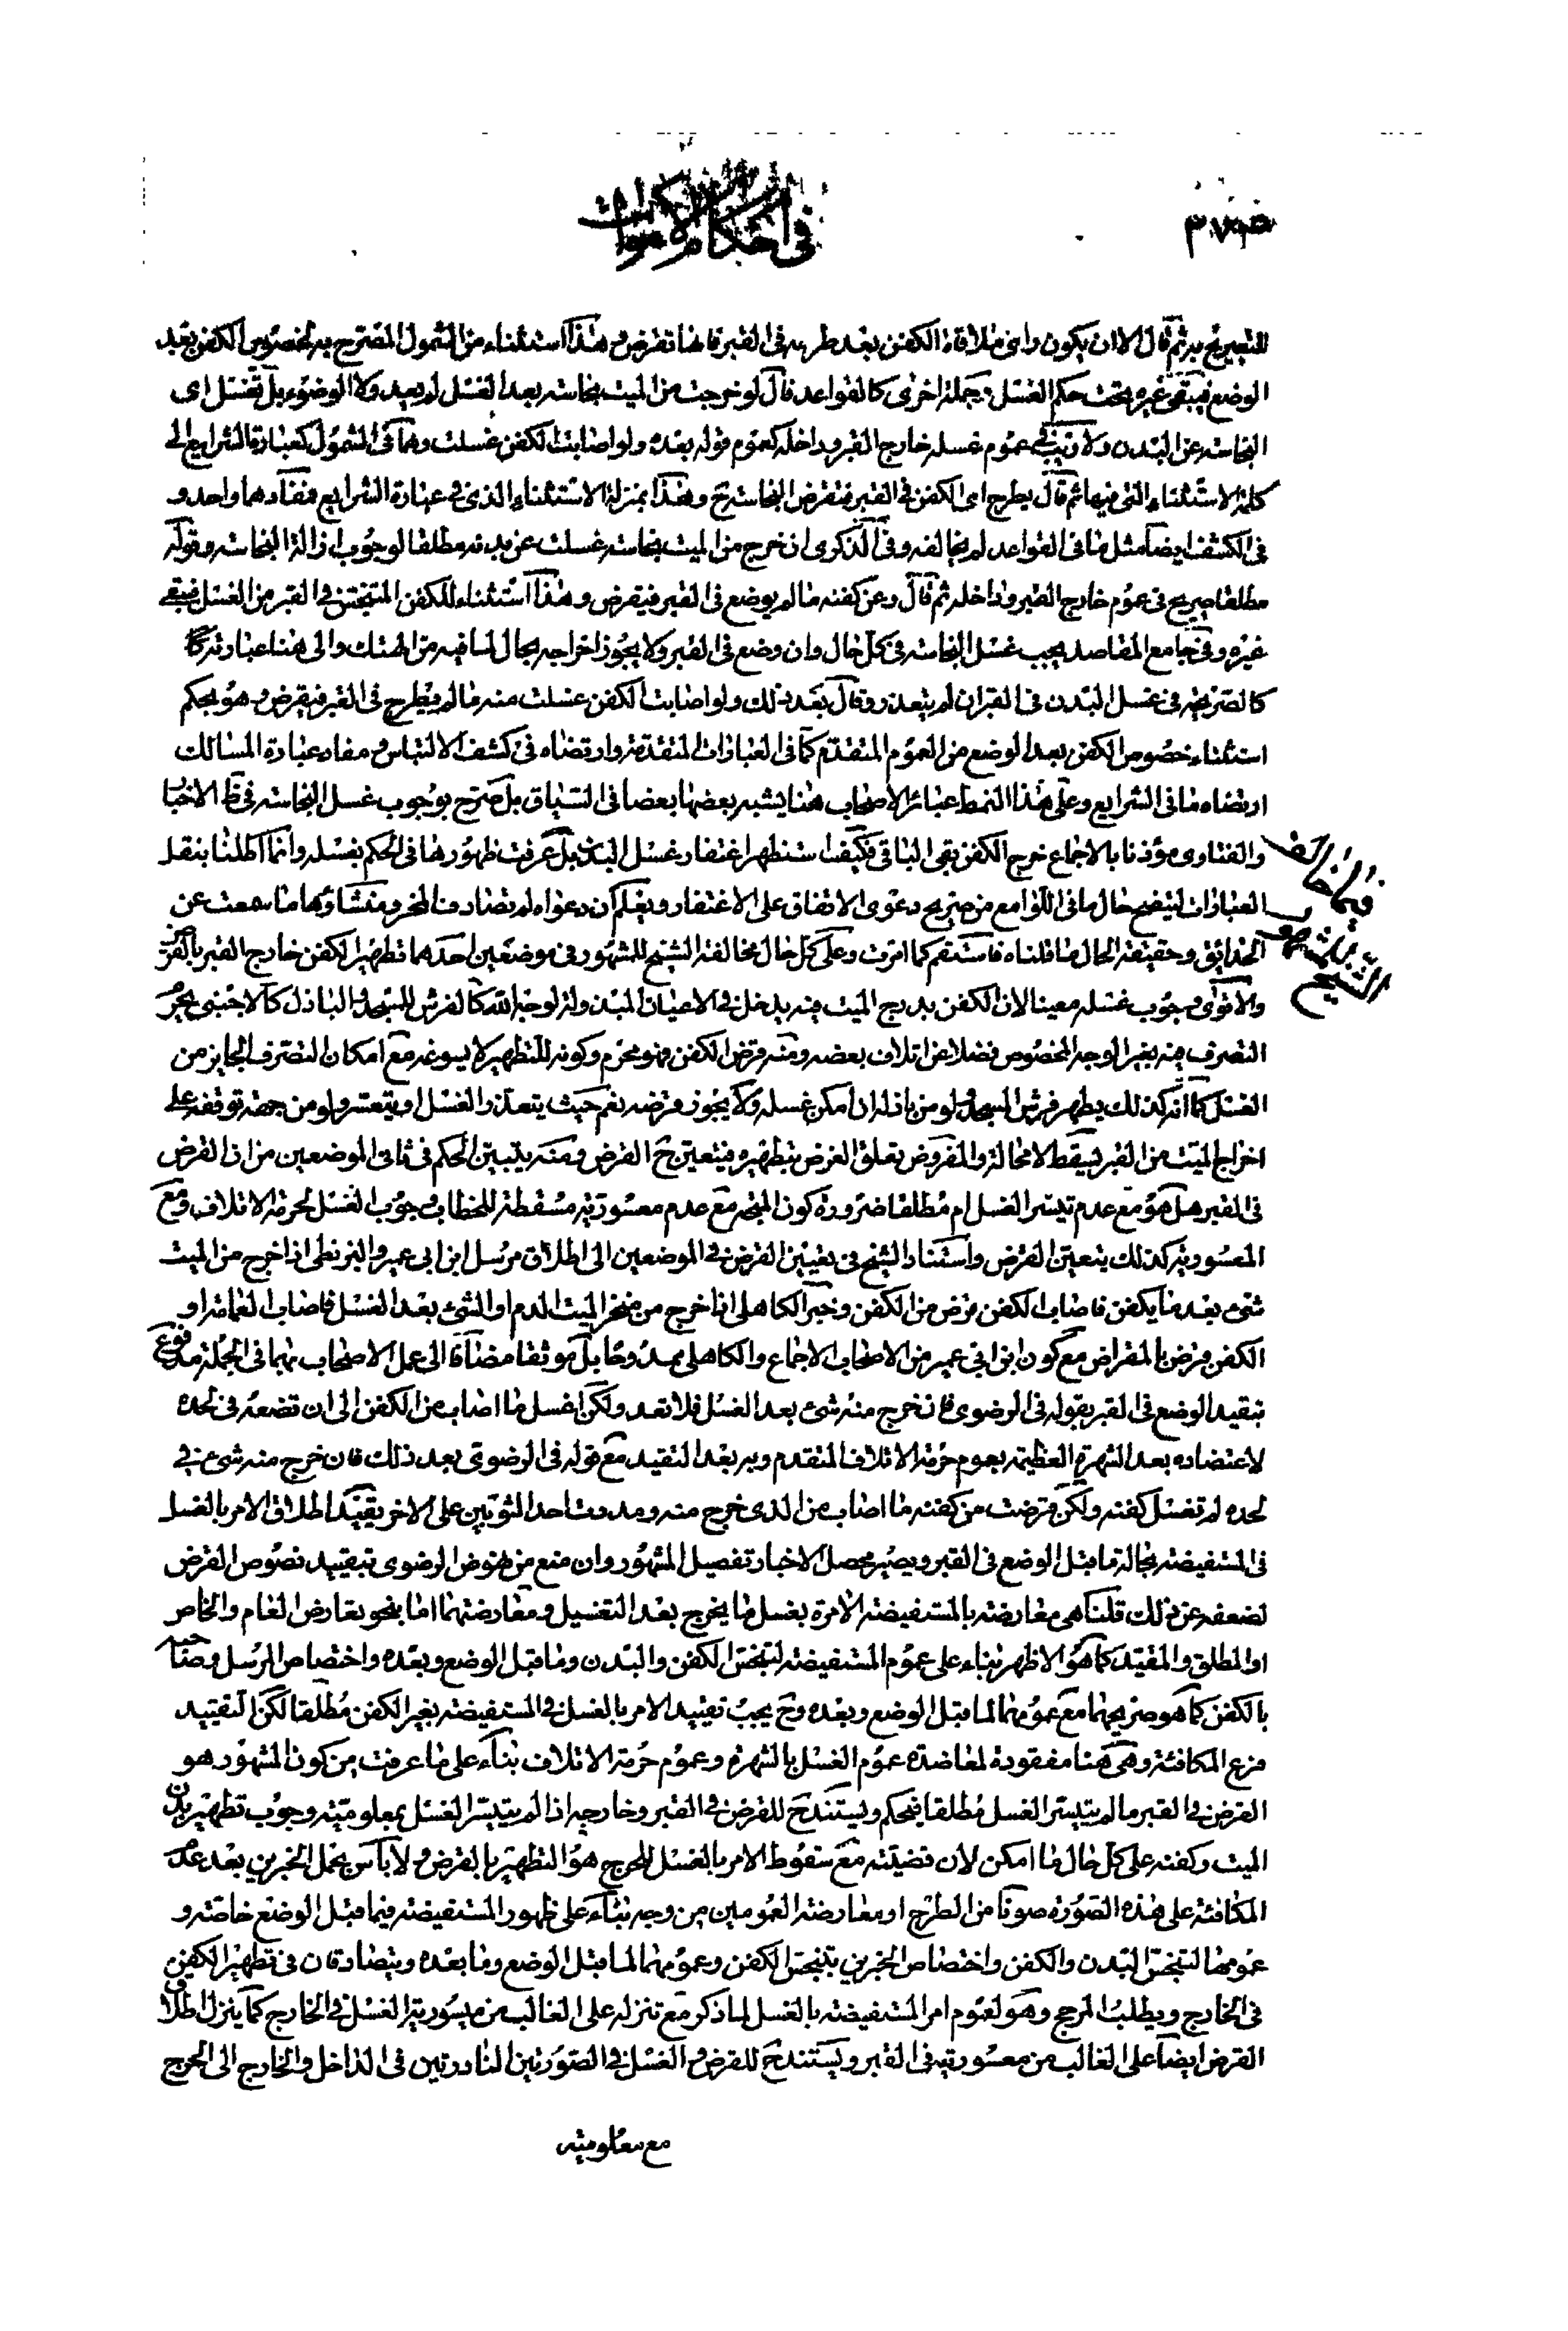 في احكام الاموات
للتصريح به ثم قال الا ان يكون واني ملاقاة الكفن بعد طرحه في القبر فانها تقرض وهذا استثناء من الشمول المصرح به لخصوص الكفن بعد
الوضع فيبقى غيره تحت حكم الغسل وجملة اخرى كالقواعد قال لو خرجت من الميت نجاسته بعد الغسل لم يعد ولا الوضوء بل تغسل اى
النجاسة عن البدن ولا ريب في عموم غسله خارج القبر وداخله كعموم قوله بعده ولو اصابت الكفن غسلت وهما في الشمول كعبارة الشرايع الى
كلمة الاستثناء التي فيها ثم قال يطرح اى الكفن في القبر فتقرض النجاسة ح وهذا بمنزلة الاستثناء الذي في عبارة الشرايع فمفادهما واحد و
في الكشف ايضا مثل ما في القواعد لم يخالفه وفي الذكرى ان خرج من الميت نجاسة غسلت عن بدنه مطلقا لوجوب ازالة النجاسة وقوله
مطلقا صريح في عموم خارج القبر وداخله ثم قال وعن كفنه ما لم يوضع في القبر فيقرض وهذا استثناء للكفن المتنجس في القبر من الغسل فيبقى
غيره وفي جامع المقاصد يجب غسل النجاسة في كل حال وان وضع في القبر ولا يجوز اخراجه بحال لما فيه من الهتك والى هنا عبارته كا
كالصريحة في غسل البدن في القبر ان لم يتعذر وقال بعد ذلك ولو اصابت الكفن غسلت منه ما لم يطرح في القبر فيقرض وهو بحكم
استثناء خصوص الكفن بعد الوضع من العموم المتقدم كما في العبارات المتقدمة وارتضاه في كشف الالتباس ومفاد عبارة المسالك
ارتضاه ما في الشرايع وعلى هذا النمط عبائر الاصحاب هنا يشبه بعضها بعضا في السياق بل صرح بوجوب غسل النجاسة في ظ الاخبار
والفتاوى مؤذنا بالاجماع خرج الكفن بقى الباقي فكيف استظهر اغتفار غسل البدن بل عرفت ظهورها في الحكم بغسله وانما اطلنا بنقل
العبارات ليتضح حال ما في اللوامع من صريح دعوى الاتفاق على الاغتفار ويعلم ان دعواه لم تصادف المخر ومنشاؤها ما سمعت عن
الحدائق وحقيقة الحال ما قلناه فاستقم كما امرت وعلى كل حال مخالفة الشيخ للمشهور في موضعين احدهما تطهير الكفن خارج القبر بالقرض
فيما خالف الشيخ المشهور
والاقوى وجوب غسله معينا لان الكفن بدرج الميت فيه يدخل في الاعيان المبذولة لوجه الله كالفرش للمسجد والباذل كالاجنبي يحرم
التصرف فيه بغير الوجه المخصوص فضلا عن اتلاف بعضه ومنه قرض الكفن فهو محرم وكونه للتطهير لا يسوغه مع امكان التصرف الجايز من
الغسل كما انه كذلك يطهر فرش المسجد ولو من باذله ان امكن غسله ولا يجوز قرضه نعم حيث يتعذر الغسل او يتعسر ولو من جهة توقفه على
اخراج الميت من القبر فيسقط لا محالة والمفروض تعلق الغرض بتطهيره فيتعين ح القرض ومنه يتبين الحكم في ثاني الموضعين من ان القرض
في القبر هل هو مع عدم تيسر الغسل ام مطلقا ضرورة كون المتجه مع عدم معسوريته مسقطة للخطاب وجوب الغسل لحرمة الاتلاف ومع
المعسورية كذلك يتعين القرض واستناد الشيخ في تعيين القرض في الموضعين الى اطلاق مرسل ابن ابي عمير والبزنطي اذا خرج من الميت
شيء بعد ما يكفن فاصاب الكفن قرض من الكفن وخبر الكاهلي اذا خرج من منخر الميت الدم او الشيء بعد الغسل فاصاب العمامة او
الكفن قرض بالمقراض مع كون ابن ابي عمير من الاصحاب الاجماع والكاهلي ممدوحا بل موثقا مضافا الى عمل الاصحاب بهما في الجملة مدفوع
بتقييد الوضع في القبر بقوله في الرضوى فان خرج منه شيء بعد الغسل فلا تعد ولكن اغسل ما اصاب من الكفن الى ان تضعه في لحده
لاعتضاده بعد الشهرة العظيمة بعموم حرمة الاتلاف المتقدم وبه بعد التقييد مع قوله في الرضوى بعد ذلك فان خرج منه شيء في
لحده لم تغسل كفنه ولكن قرضت من كفنه ما اصاب من الذي خرج منه ومددت احد الثوبين على الاخر يقيد اطلاق الامر بالغسل
في المستفيضة بحالة ما قبل الوضع في القبر ويصير محصل الاخبار تفصيل المشهور وان منع من نهوض الرضوى تبقييد نصوص القرض
لضعفه عن ذلك قلنا هي معارضة بالمستفيضة الامرة بغسل ما يخرج بعد التغسيل ومعارضتهما اما بنحو تعارض العام والخاص
او المطلق والمقيد كما هو الاظهر بناء على عموم المستفيضة لتنجس الكفن والبدن وما قبل الوضع وبعده واختصاص المرسل وصاحبه
بالكفن كما هو صريحهما مع عمومهما لما قبل الوضع وبعده وح يجب تقييد الامر بالغسل في المستفيضة بغير الكفن مطلقا لكن التقييد
فرع المكافئة وهي هنا مفقودة لمعاضدة عموم الغسل بالشهرة وعموم حرمة الاتلاف بناء على ما عرفت من كون المشهور هو
القرض في القبر ما لم يتيسر الغسل مطلقا فيحكم ويستند ح للقرض في القبر وخارجه اذا لم يتيسر الغسل بمعلومية وجوب تطهير بدن
الميت وكفنه على كل حال ما امكن لان قضيته مع سقوط الامر بالغسل للحرج هو التطهير بالقرض ولا باس بحمل الخبرين بعد عدم
المكافئة على هذه الصورة صونا من الطرح او معارضة العمومين من وجه بناء على ظهور المستفيضة فيما قبل الوضع خاصة و
عمومها لتنجس البدن والكفن واختصاص الخبرين بتنجس الكفن وعمومهما لما قبل الوضع وما بعده ويتصادقان في تطهير الكفن
في الخارج ويطلب المرجح وهو لعموم امر المستفيضة بالغسل لما ذكر مع تنزله على الغالب من ميسورية الغسل في الخارج كما ينزل اطلاق
القرض ايضا على الغالب من معسوريته في القبر ويستند ح للقرض والغسل في الصورتين النادرتين في الداخل والخارج الى الحرج
مع معلومية